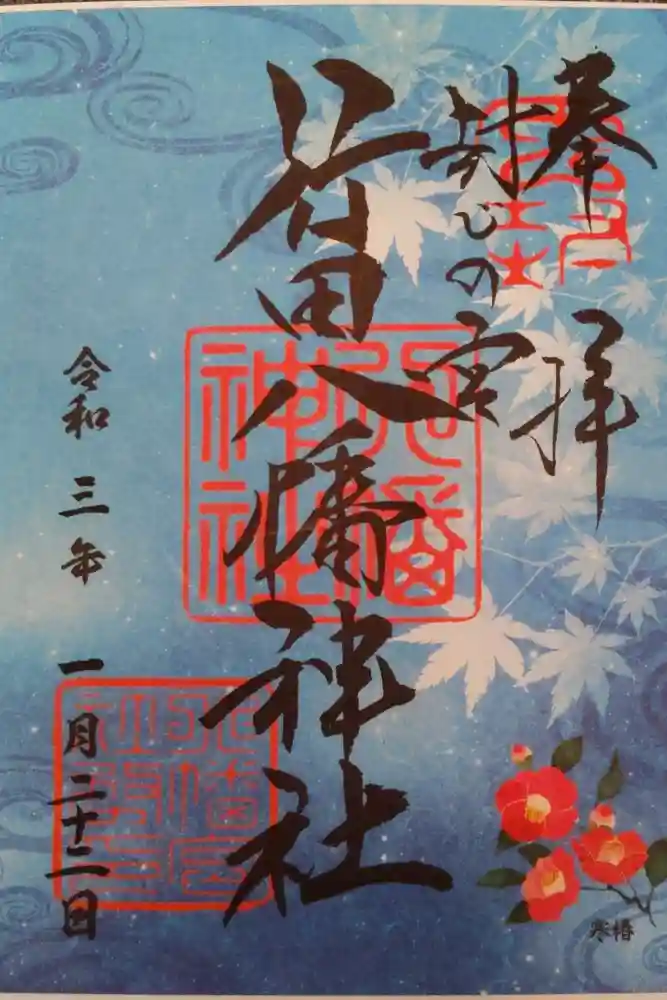 奉拝
封じの宮
行田八幡神社
八幡
神社
令和三年一月二十二日
寒椿